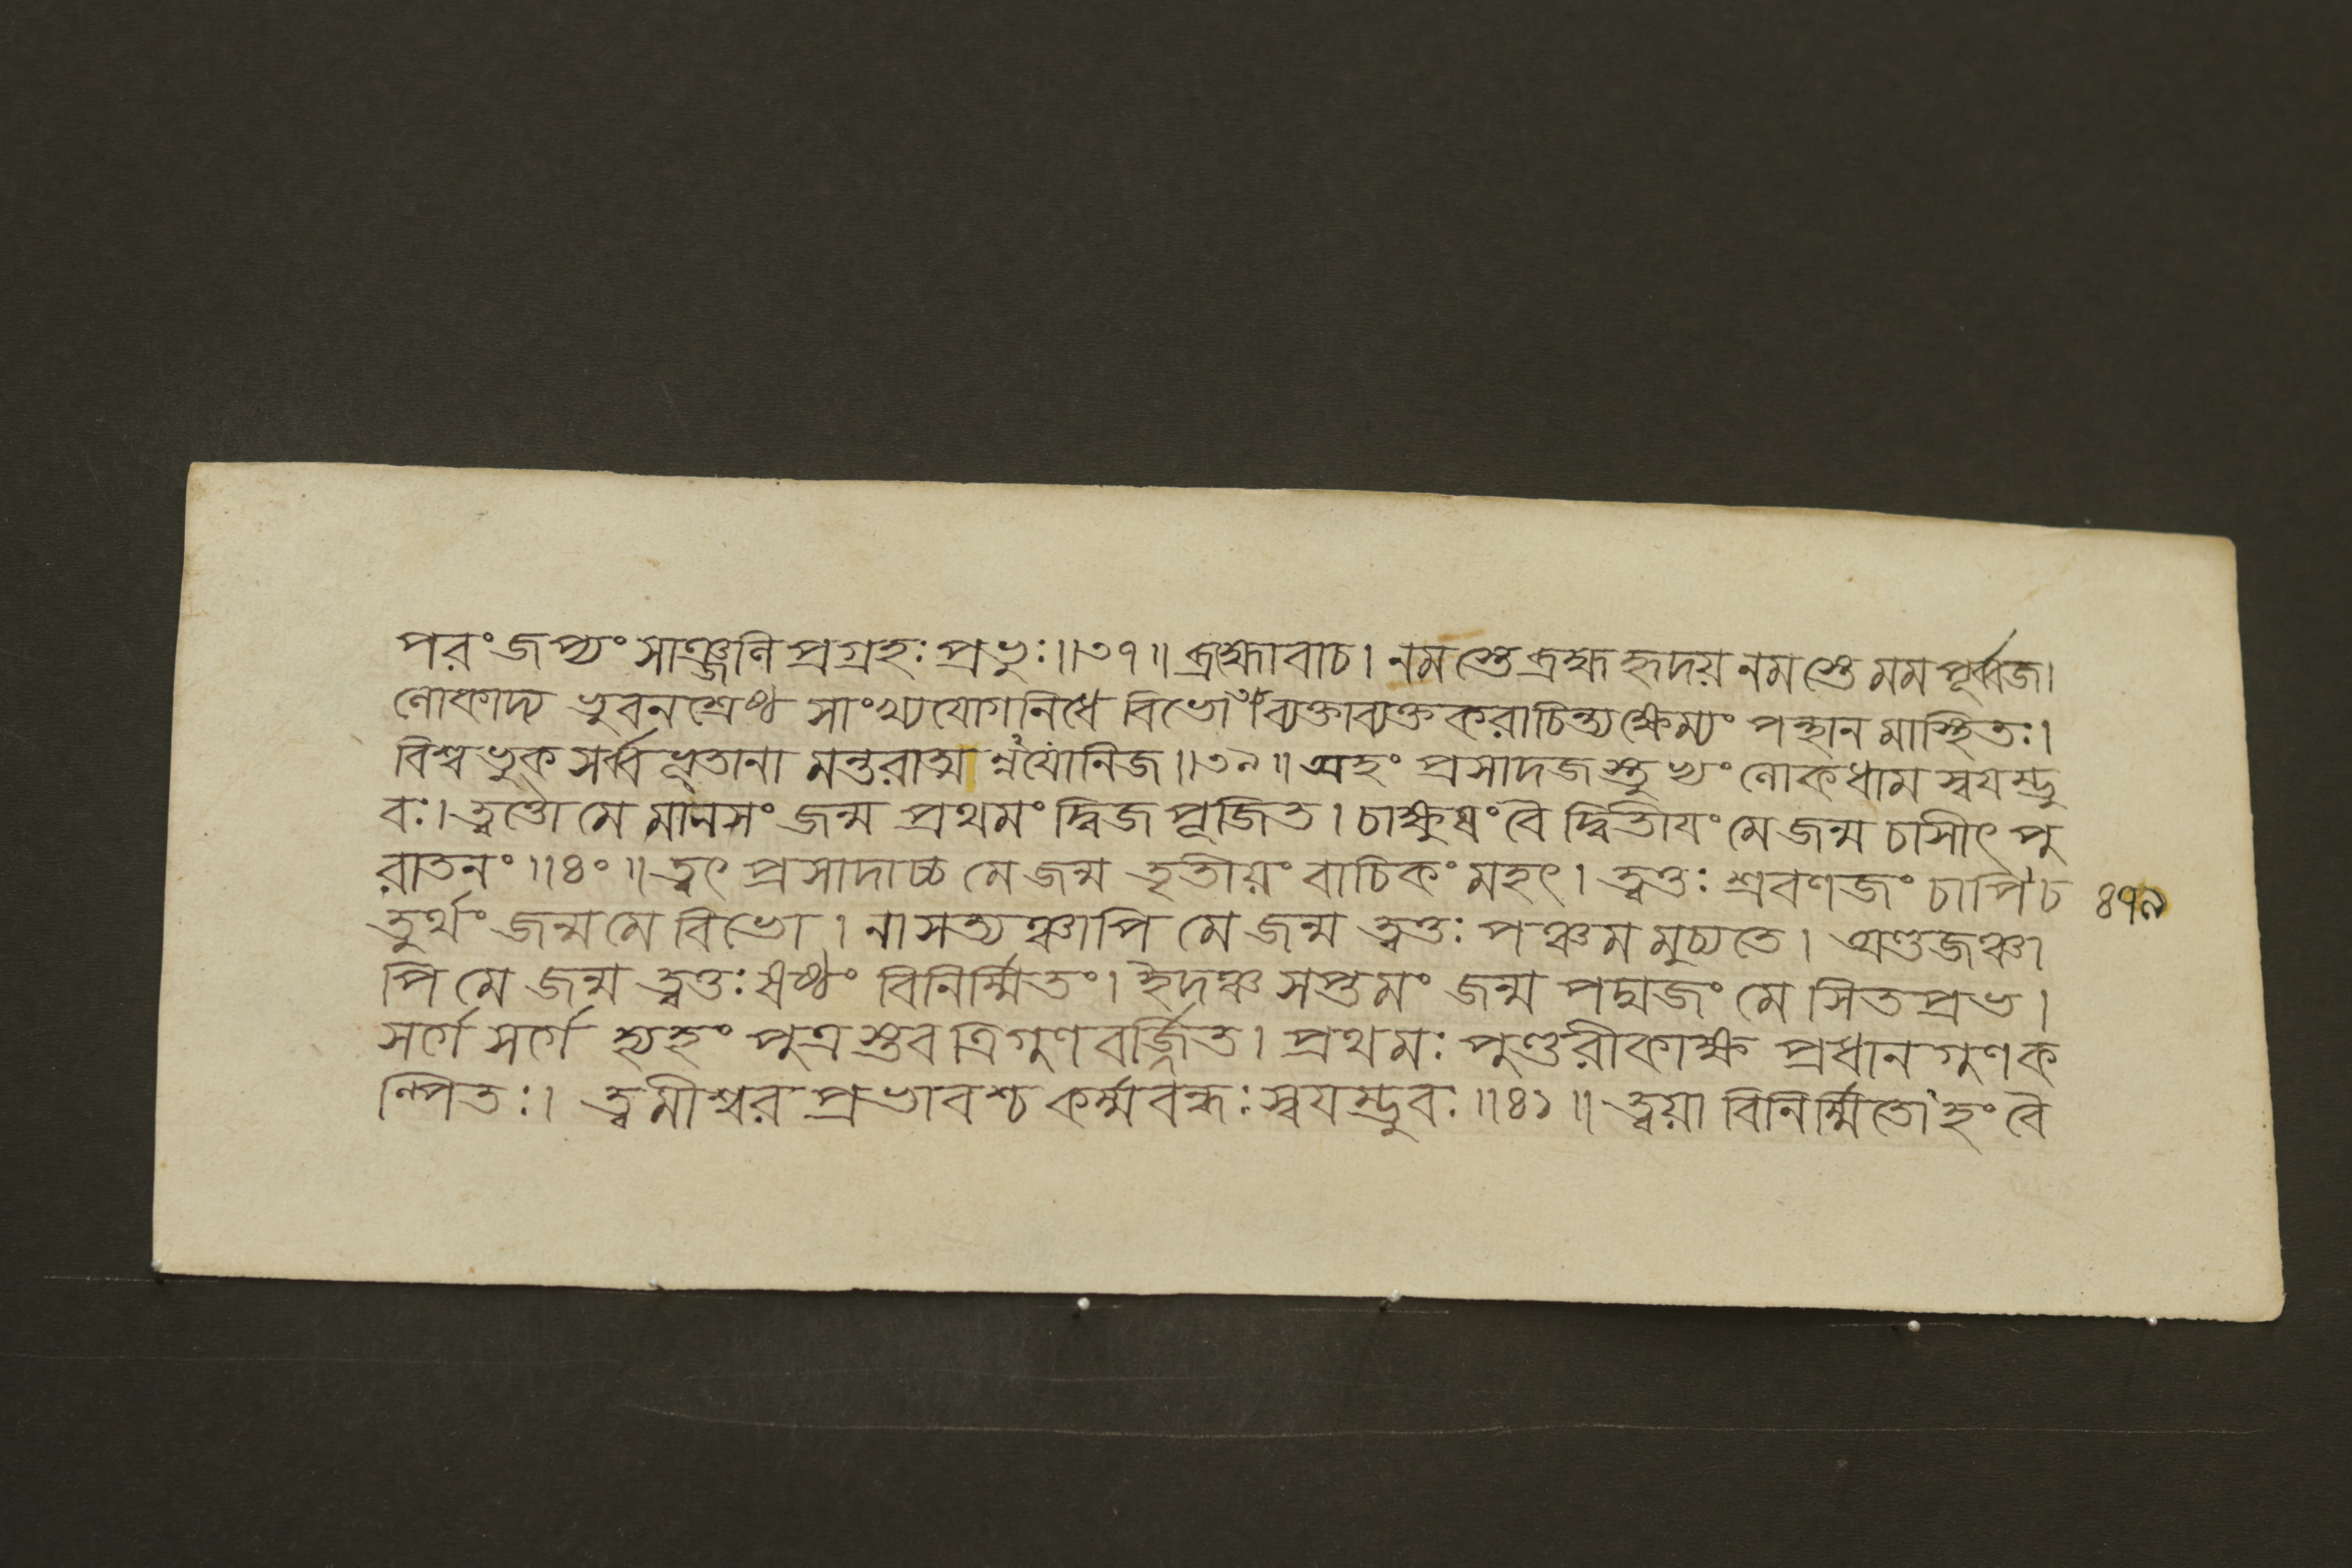 পরং জপ্যং সাঞ্জলি প্রগ্রহঃ প্রভুঃ॥৩৭॥ ব্রহ্মোবাচ। নমস্তে ব্রহ্ম হৃদয় নমস্তে মম পূর্ব্বজ।
লোকাদ্য ভুবনশ্রেষ্ঠ সাংখ্যযোগনিধে বিভো॥ ব্যক্তাব্যক্তকরাচিন্ত্য ক্ষেম্যং পন্থানমাস্থিতঃ।
বিশ্বভুক সর্ব্বভূতানামন্তরাত্মন্নযোনিজ॥৩৯॥ অহং প্রসাদজস্তুভ্যং লোকধাম স্বযম্ভু
বঃ। ত্বত্তো মে মানসং জন্ম প্রথমং দ্বিজপূজিত। চাক্ষুষং বৈ দ্বিতীযং মে জন্ম চাসীৎ পু
রাতনং॥৪০॥ ত্বৎ প্রসাদাচ্চ মে জন্ম তৃতীয়ং বাচিকং মহৎ। ত্বত্তঃ শ্রবণজং চাপি চ ৪৭৯
তুর্থং জন্ম মে বিভো। নাসত্যঞ্চাপি মে জন্ম ত্বত্তঃ পঞ্চমমুচ্যতে। অণ্ডজঞ্চা
পি মে জন্ম ত্বত্তঃ ষষ্ঠং বিনির্ম্মিতং। ইদঞ্চ সপ্তমং জন্ম পদ্মজং মে সিতপ্রভ।
সর্গে সর্গে হ্যহং পুত্রস্তব ত্রিগুণ বর্জ্জিত। প্রথমঃ পুণ্ডরীকাক্ষ প্রধান গুণক
ল্পিতঃ। ত্বমীশ্বর প্রভাবশ্চ কর্ম্মবন্ধঃ স্বযম্ভুবঃ॥৪১॥ ত্বয়া বিনির্ম্মিতোঽহং বৈ